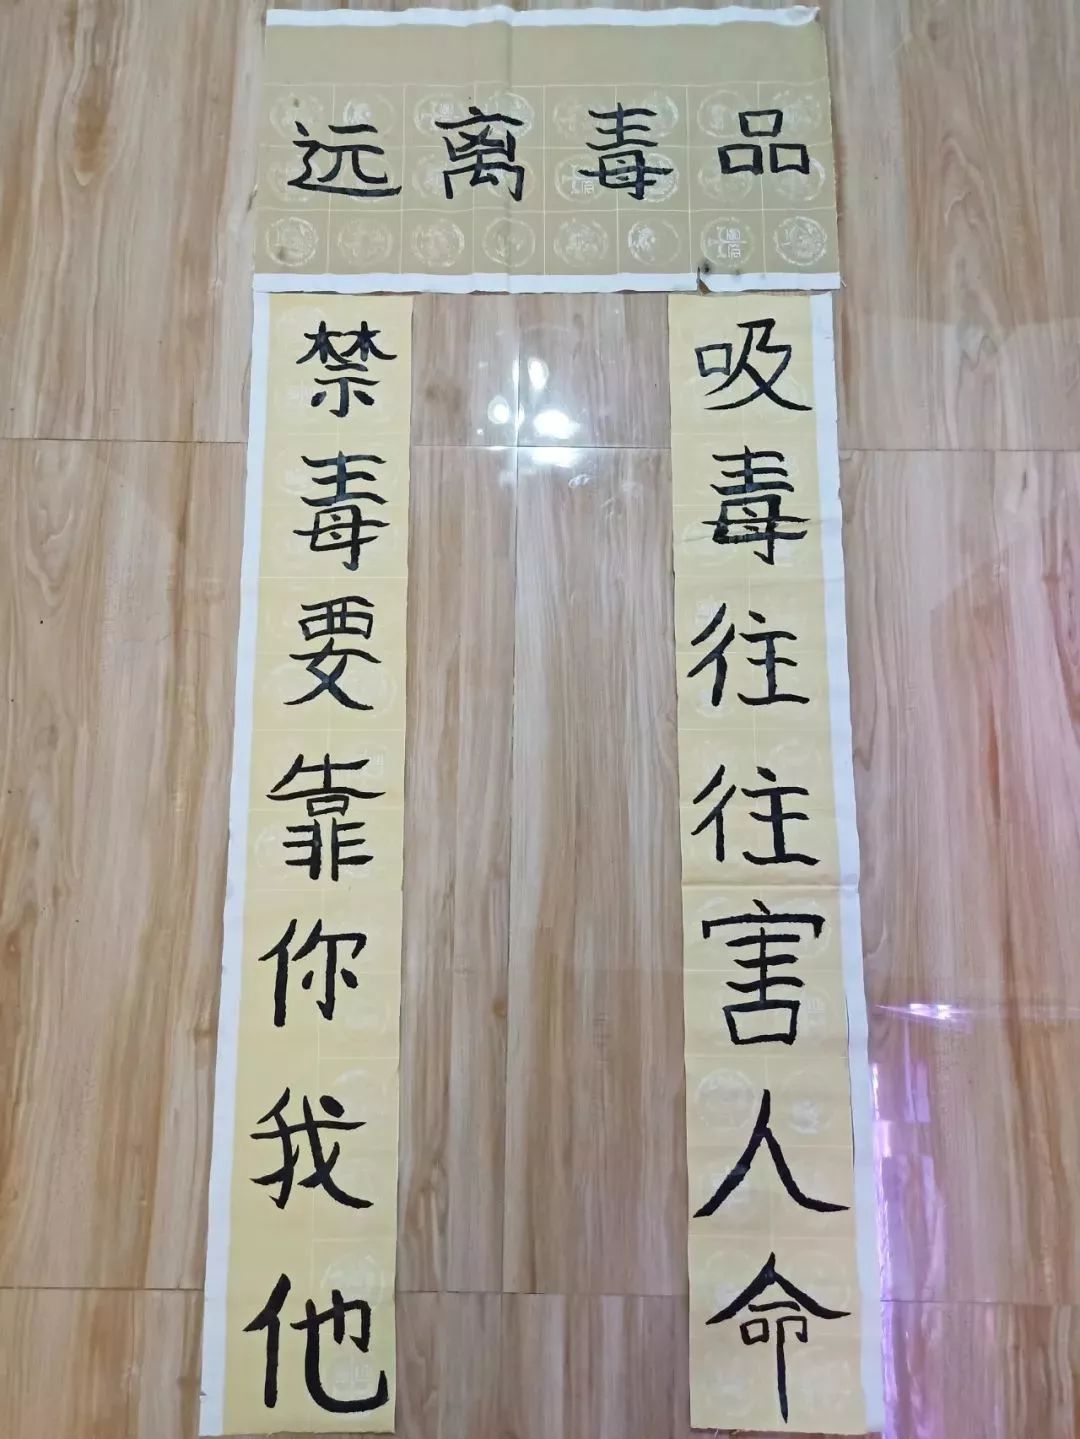 远离毒品
吸毒往往害人命
禁毒要靠你我他